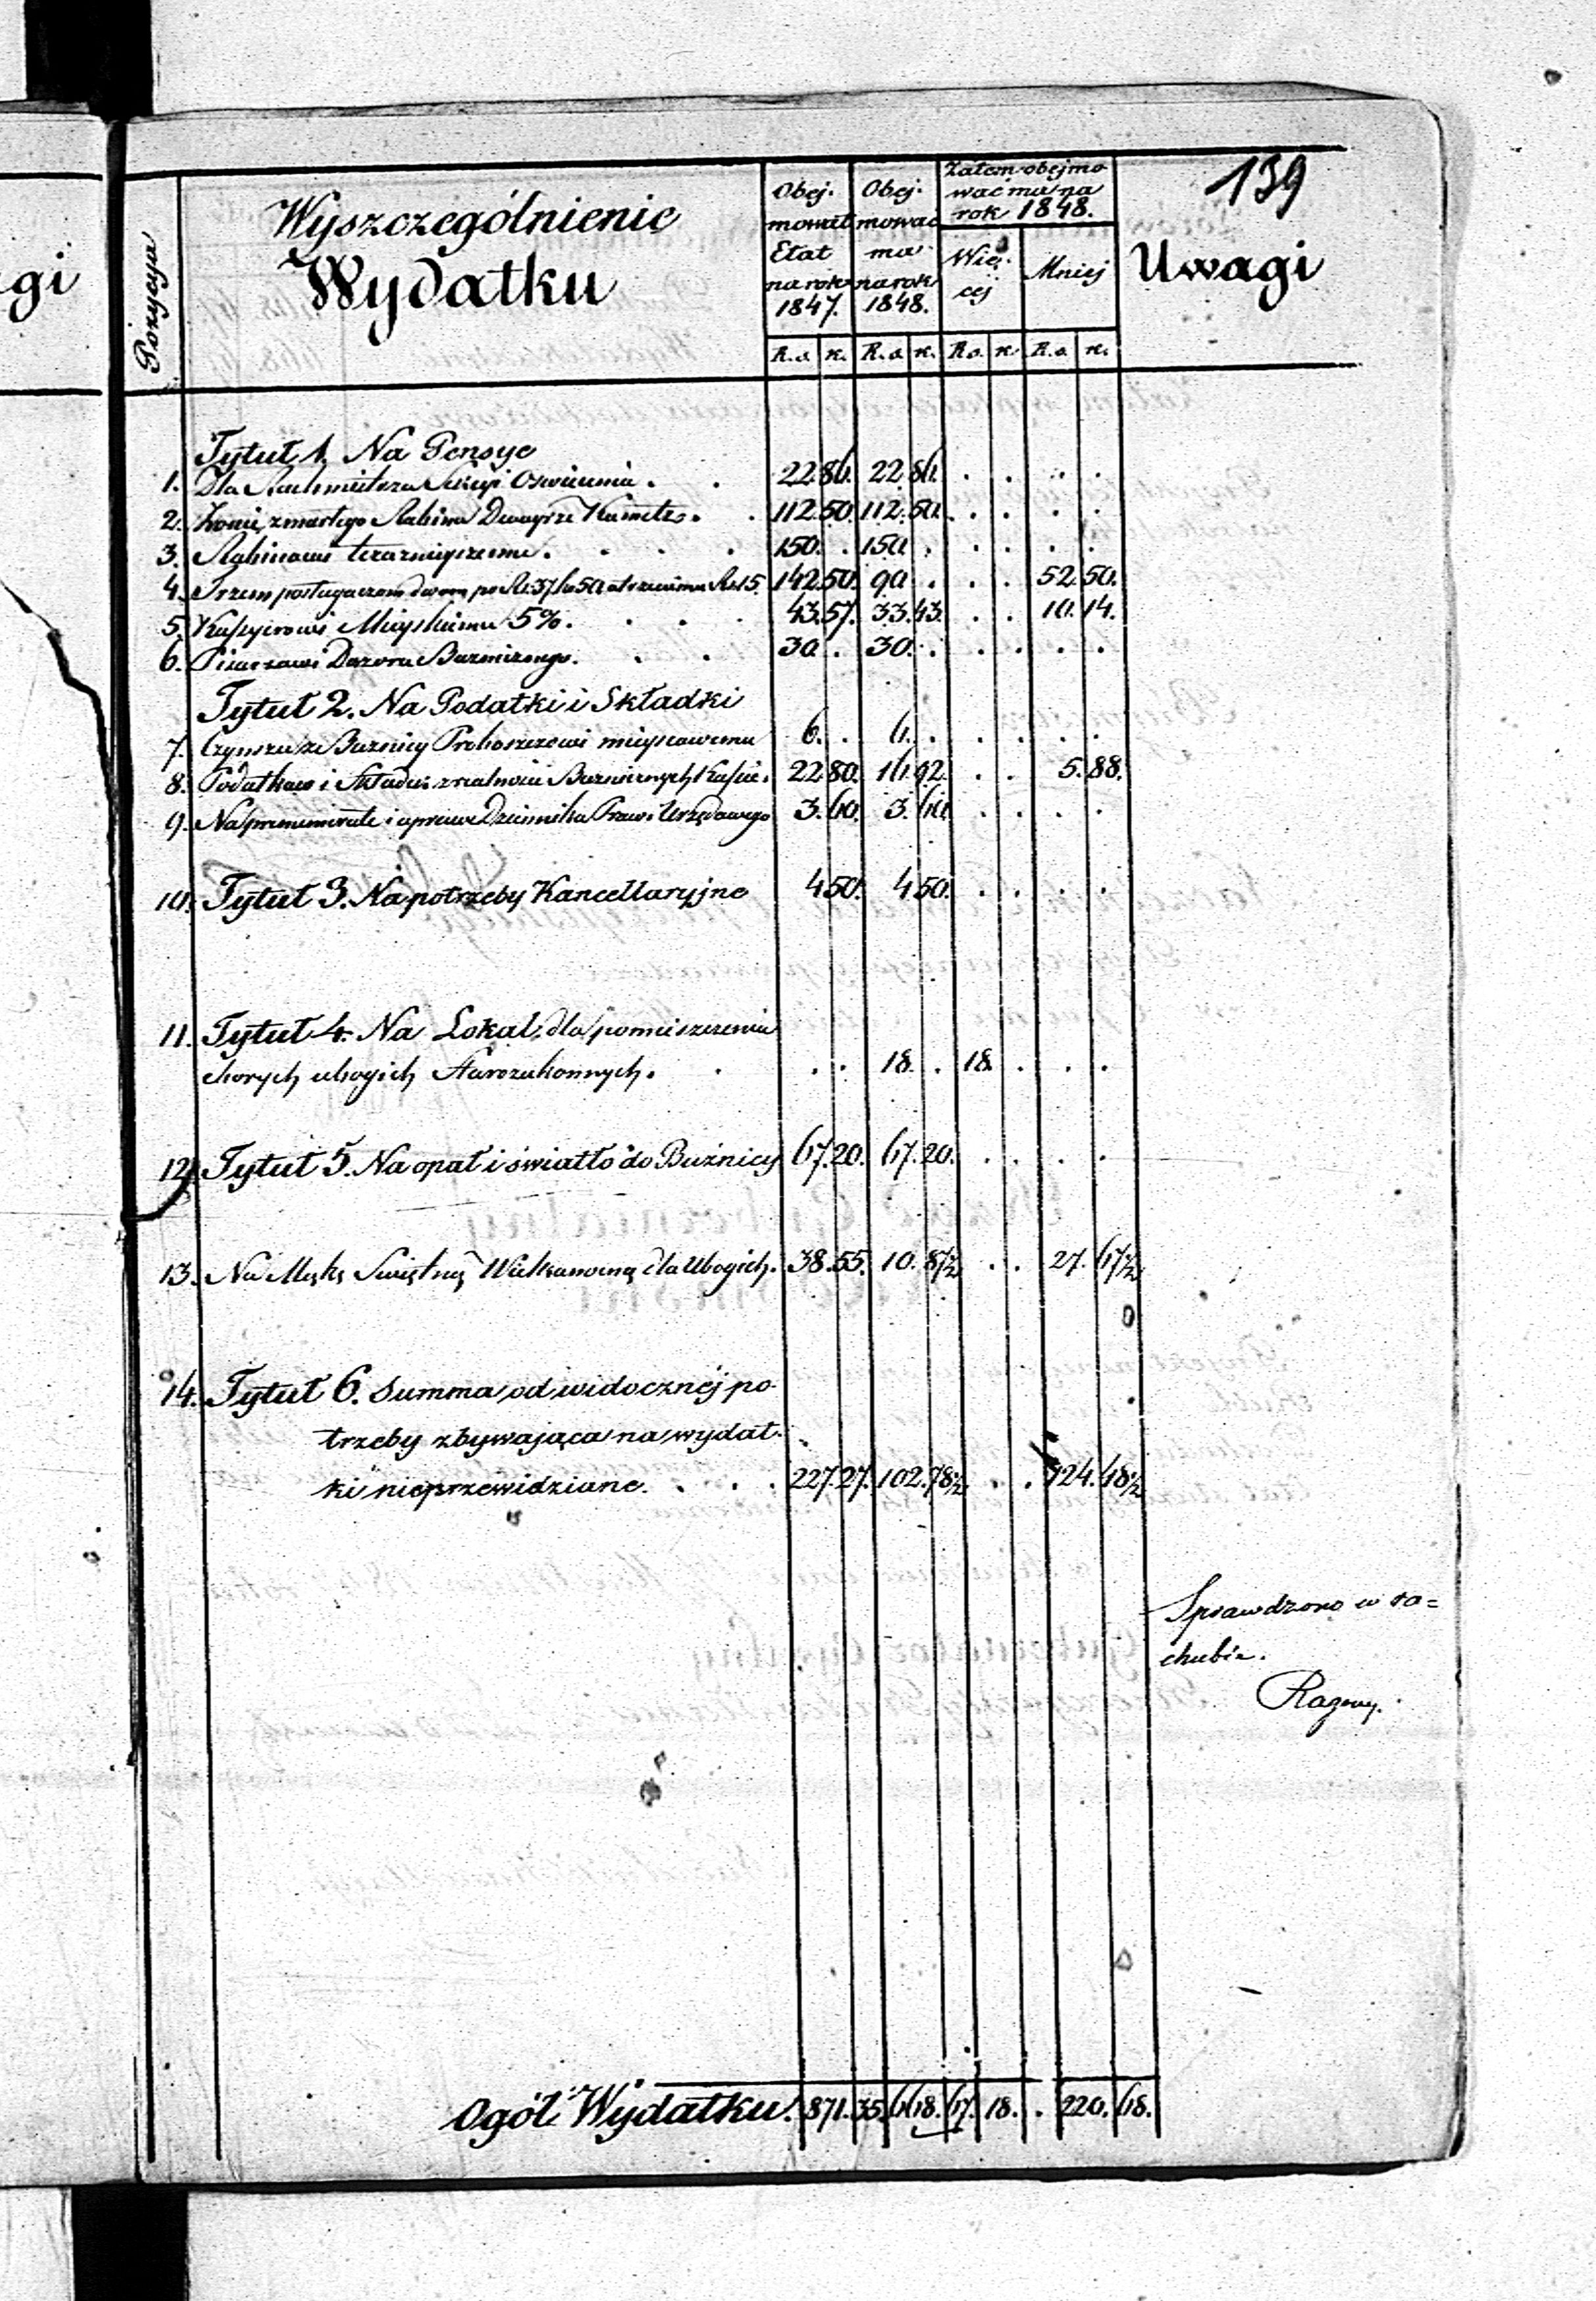 139
Pozycya
Wyszczególnienie
Wydatku
Obej-
mował
Etat
na rok
1847.
Obej-
mować
ma
na rok
1848.
Zatem obejmo
wać ma na
rok 1848.
Wię-
cej
Mniej
Uwagi
R.s. k. R.s. k. R.s. k. R.s. k.
Tytuł 1. Na Pensye
1. Dla Rachmistrza Sekcyi Oświecenia . . 22.86. 22.86. . . . .
2. Żonie zmarłego Rabina Kametz. . 112.50. 112.50. . . . .
3. Rabinowi terazniejszemu. . . . . 150. . 150. . . . . .
4. Trzem posługaczom dwom po Rs. 37 k. 50 a trzeciemu Rs. 15. 142.50. 90. . . . 52.50.
5. Kassyerowi Mieyskiemu 5%. . . . 43.57. 33.43. . . 10.14.
6. Pisarzowi Dozoru Bużniczego. . . 30. . 30. . . . . .
Tytuł 2. Na Podatki i Składki
7. Czynszu ze Bużnicy Proboszczowi mieyscowemu 6. . 6. . . . . .
8. Podatków i Składek z realności Bużnicznych Kassie. 22.80. 16.92. . . 5.88.
9. Na prenumeratę i oprawę Dziennika Praw i Urzędowego 3.60. 3.60. . . . .
10. Tytuł 3. Na potrzeby Kancellaryjne 4.50. 4.50. . . . .
11. Tytuł 4. Na Lokal dla pomieszczenia
chorych ubogich Starozakonnych. . . . 18. . 18. . . .
12. Tytuł 5. Na opał i światło do Bużnicy 67.20. 67.20. . . . .
13. Na Mąkę Świętną Wielkanocną dla Ubogich. 38.55. 10.87½ . . 27.67½
14. Tytuł 6. Summa od widocznéj po
trzeby zbywająca na wydat-
ki nieprzewidziane. . . . 227.27. 102.78½ . . 124.48½
Sprawdzono w ra=
chubie.
Ogół Wydatku. 871.35. 668.67. 18. . 220.68.